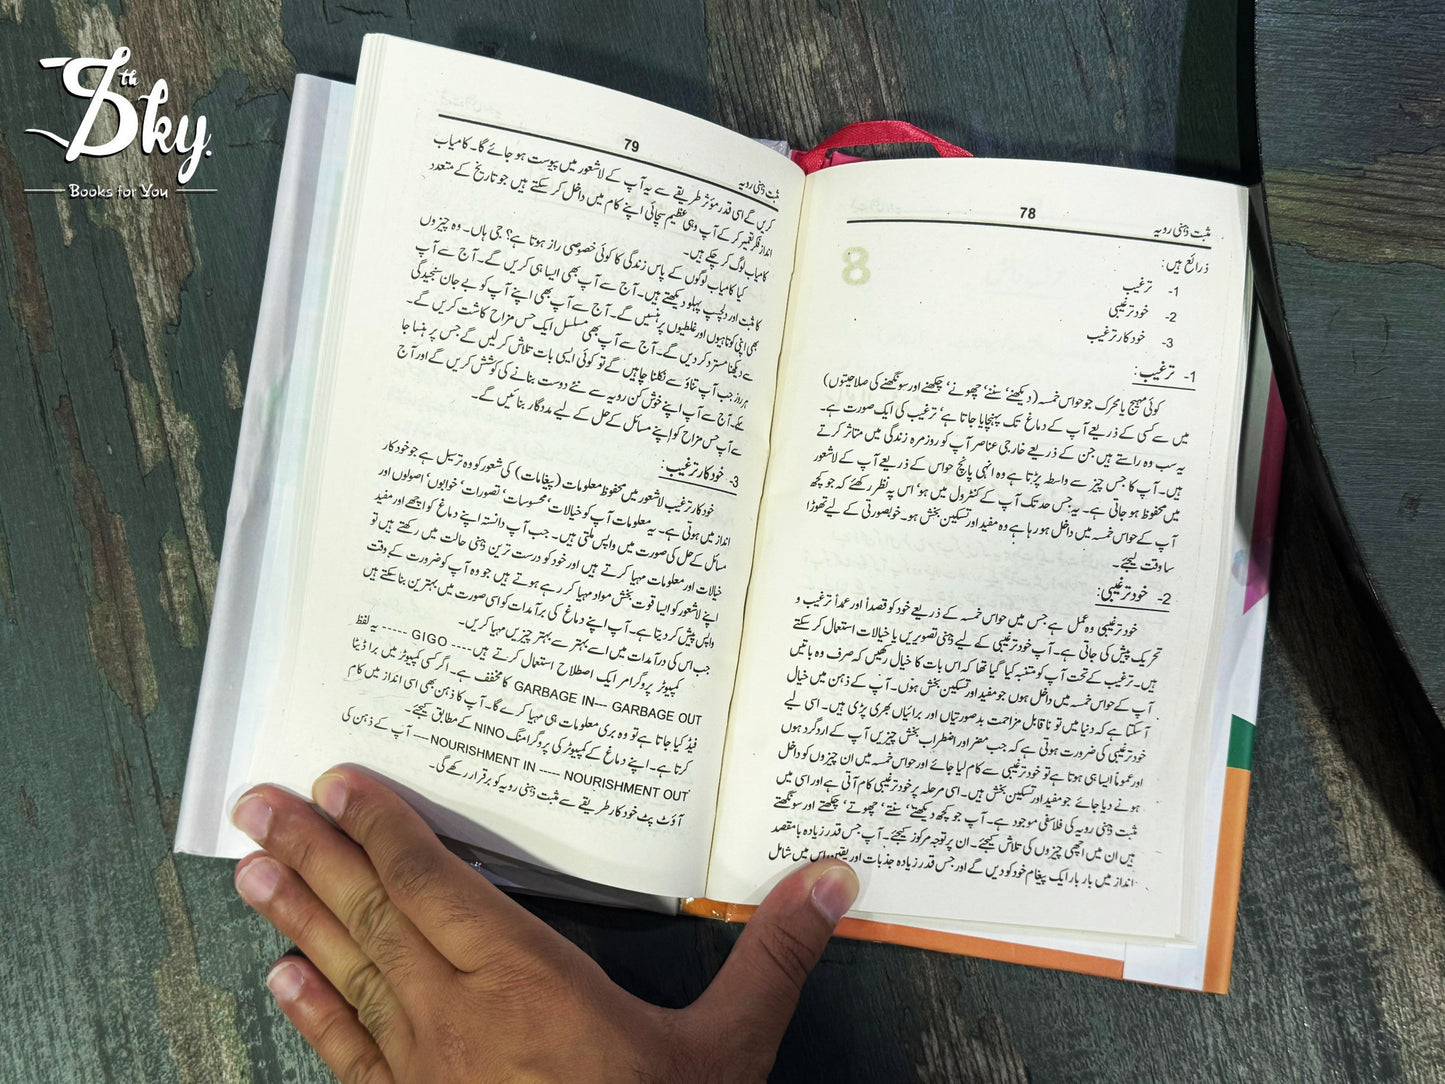 8th Sky.
Books for You
78
مثبت ذہنی رویہ
ذرائع ہیں:
1- ترغیب
2- خود ترغیبی
3- خود کار ترغیب
1- ترغیب:
کوئی مہیج یا محرک جو حواس خمسہ (دیکھنے، سننے، چھونے، چکھنے اور سونگھنے کی صلاحیتوں)
میں سے کسی کے ذریعے آپ کے دماغ تک پہنچایا جاتا ہے، ترغیب کی ایک صورت ہے۔
یہ سب وہ راستے ہیں جن کے ذریعے خارجی عناصر آپ کو روزمرہ زندگی میں متاثر کرتے
ہیں۔ آپ کا جس چیز سے واسطہ پڑتا ہے وہ انہی پانچ حواس کے ذریعے آپ کے لاشعور
میں محفوظ ہو جاتی ہے۔ یہ جس حد تک آپ کے کنٹرول میں ہو، اس پہ نظر رکھئے کہ جو کچھ
آپ کے حواس خمسہ میں داخل ہو رہا ہے وہ مفید اور تسکین بخش ہو۔ خوبصورتی کے لیے تھوڑا
سا وقت لیجئے۔
2- خود ترغیبی:
خود ترغیبی وہ عمل ہے جس میں حواس خمسہ کے ذریعے خود کو قصداً اور عمداً ترغیب و
تحریک پیش کی جاتی ہے۔ آپ خود ترغیبی کے لیے ذہنی تصویریں یا خیالات استعمال کر سکتے
ہیں۔ ترغیب کے تحت آپ کو متنبہ کیا گیا تھا کہ اس بات کا خیال رکھیں کہ صرف وہ باتیں
آپ کے حواس خمسہ میں داخل ہوں جو مفید اور تسکین بخش ہوں۔ آپ کے ذہن میں خیال
آ سکتا ہے کہ دنیا میں تو ناقابل مزاحمت بدصورتیاں اور برائیاں بھری پڑی ہیں۔ اسی لیے
خود ترغیبی کی ضرورت ہوتی ہے کہ جب مضر اور اضطراب بخش چیزیں آپ کے اردگرد ہوں
اور عموماً ایسا ہی ہوتا ہے تو خود ترغیبی سے کام لیا جائے اور حواس خمسہ میں ان چیزوں کو داخل
ہونے دیا جائے جو مفید اور تسکین بخش ہیں۔ اسی مرحلہ پر خود ترغیبی کام آتی ہے اور اسی میں
مثبت ذہنی رویہ کی فلاسفی موجود ہے۔ آپ جو کچھ دیکھتے، سنتے، چھوتے، چکھتے اور سونگھتے
ہیں ان میں اچھی چیزوں کی تلاش کیجئے۔ ان پر توجہ مرکوز کیجئے۔ آپ جس قدر زیادہ بامقصد
انداز میں بار بار ایک پیغام خود کو دیں گے اور جس قدر زیادہ جذبات اور یقین اس میں شامل
79
مثبت ذہنی رویہ
کریں گے اسی قدر مؤثر طریقے سے یہ آپ کے لاشعور میں پیوست ہو جائے گا۔ کامیاب
انداز فکر تعمیر کر کے آپ وہی عظیم سچائی اپنے کام میں داخل کر سکتے ہیں جو تاریخ کے متعدد
کامیاب لوگ کر چکے ہیں۔
کیا کامیاب لوگوں کے پاس زندگی کا کوئی خصوصی راز ہوتا ہے؟ جی ہاں۔ وہ چیزوں
کا مثبت اور دلچسپ پہلو دیکھتے ہیں۔ آج سے آپ بھی ایسا ہی کریں گے۔ آج سے آپ
بھی اپنی کوتاہیوں اور غلطیوں پر ہنسیں گے۔ آج سے آپ بھی اپنے آپ کو بے جان سنجیدگی
سے دیکھنا مسترد کر دیں گے۔ آج سے آپ بھی مسلسل ایک حس مزاح کاشت کریں گے۔
ہر روز جب آپ تناؤ سے نکلنا چاہیں گے تو کوئی ایسی بات تلاش کر لیں گے جس پر ہنسا جا
سکے۔ آج سے آپ اپنے خوش کن رویہ سے نئے دوست بنانے کی کوشش کریں گے اور آج
سے آپ حس مزاح کو اپنے مسائل کے حل کے لیے مددگار بنائیں گے۔
3- خود کار ترغیب:
خود کار ترغیب لاشعور میں محفوظ معلومات (پیغامات) کی شعور کو وہ ترسیل ہے جو خود کار
انداز میں ہوتی ہے۔ یہ معلومات آپ کو خیالات، محسوسات، تصورات، خوابوں، اصولوں اور
مسائل کے حل کی صورت میں واپس ملتی ہیں۔ جب آپ دانستہ اپنے دماغ کو اچھے اور مفید
خیالات اور معلومات مہیا کرتے ہیں اور خود کو درست ترین ذہنی حالت میں رکھتے ہیں تو
اپنے لاشعور کو ایسا قوت بخش مواد مہیا کر رہے ہوتے ہیں جو وہ آپ کو ضرورت کے وقت
واپس پیش کر دیتا ہے۔ آپ اپنے دماغ کی برآمدات کو اسی صورت میں بہترین بنا سکتے ہیں
جب اس کی درآمدات میں اسے بہتر سے بہتر چیزیں مہیا کریں۔
کمپیوٹر پروگرامر ایک اصطلاح استعمال کرتے ہیں ---- GIGO ------ یہ لفظ
GARBAGE IN--- GARBAGE OUT کا مخفف ہے۔ اگر کسی کمپیوٹر میں برا ڈیٹا
فیڈ کیا جاتا ہے تو وہ بری معلومات ہی مہیا کرے گا۔ آپ کا ذہن بھی اسی انداز میں کام
کرتا ہے۔ اپنے دماغ کے کمپیوٹر کی پروگرامنگ NINO کے مطابق کیجئے۔
NOURISHMENT IN ----- NOURISHMENT OUT --- آپ کے ذہن کی
آؤٹ پٹ خود کار طریقے سے مثبت ذہنی رویہ کو برقرار رکھے گی۔